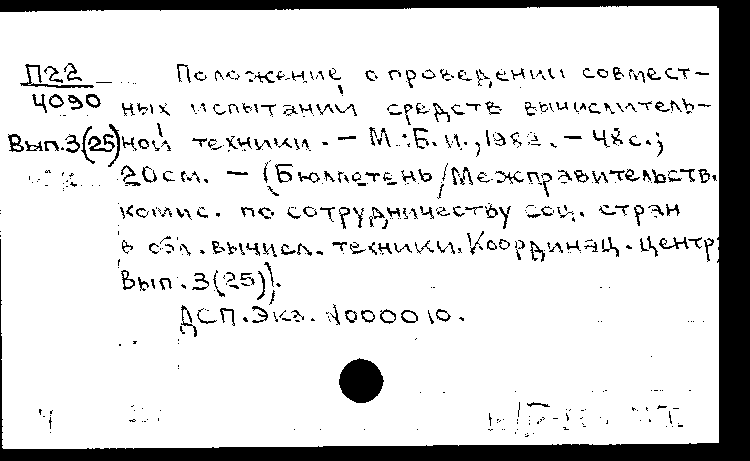 П22 Положение о проведении совмест-
4090 ных испытаний средств вычислитель-
Вып.3(25) ной техники. – М.:Б.и.,1982. – 48с.;
20см. – (Бюллетень/Межправительств.
комис. по сотрудничеству соц. стран
в обл. вычисл. техники. Координац. центр;
Вып.3(25)).
ДСП. Экз. N000010.
Ч